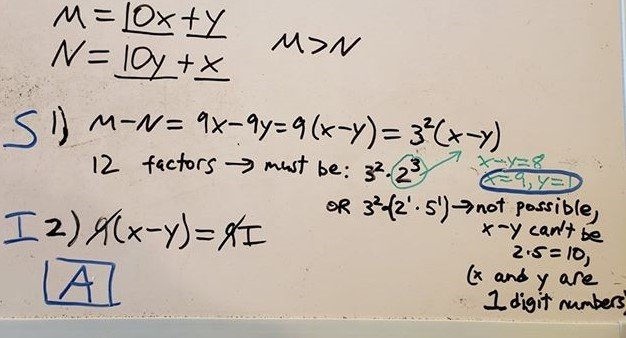 M = 10x + y
N = 10y + x
M > N
S 1) M-N = 9x-9y = 9(x-y) = 3²(x-y)
12 factors → must be: 3²·2³
x-y=8
x=9, y=1
OR 3²·(2¹·5¹) → not possible,
x-y can't be
2·5=10,
(x and y are
1 digit numbers)
I 2) 9(x-y) = 9I
A